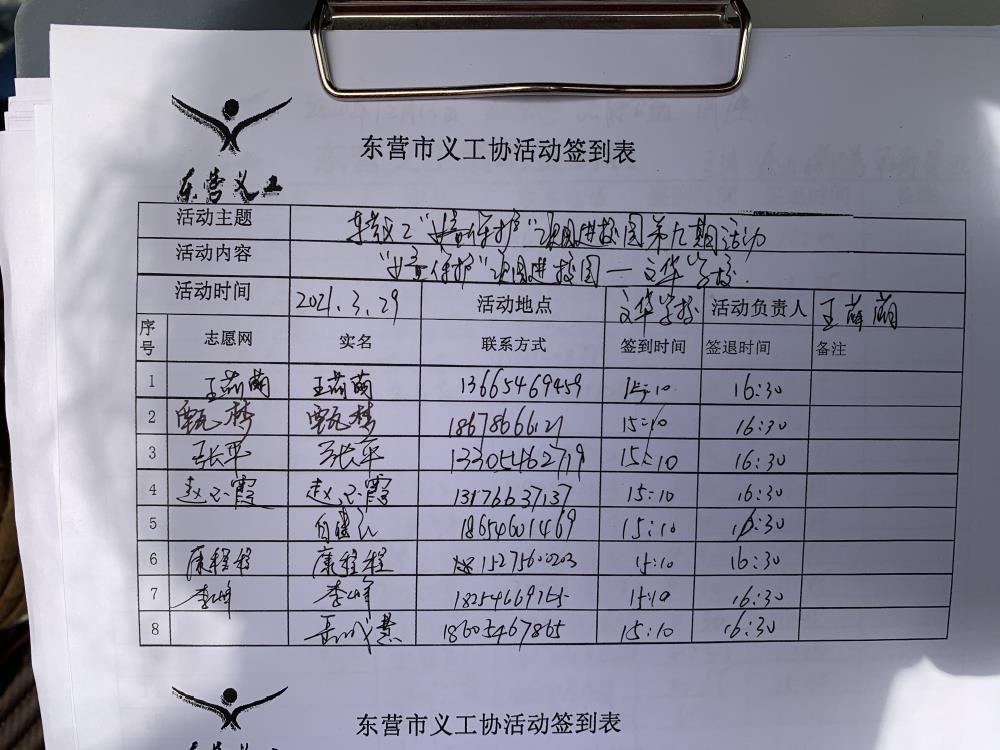 东营市义工协活动签到表
东营义工
活动主题 东营义工“女童保护”项目进校园第九期活动
活动内容 “女童保护”项目进校园—文华学校.
活动时间 2021.3.29 活动地点 文华学校 活动负责人 王萌萌
序号 志愿网 实名 联系方式 签到时间 签退时间 备注
1 13665469459 15:10 16:30
2 甄梦 甄梦 18678666121 15:10 16:30
3 张平 张平 13305462719 15:10 16:30
4 赵霞 赵霞 13176637137 15:10 16:30
5 18654601469 15:10 16:30
6 康程程 康程程 15275600203 15:10 16:30
7 李峰 李峰 15:10 16:30
8 18605467865 15:10 16:30
东营市义工协活动签到表